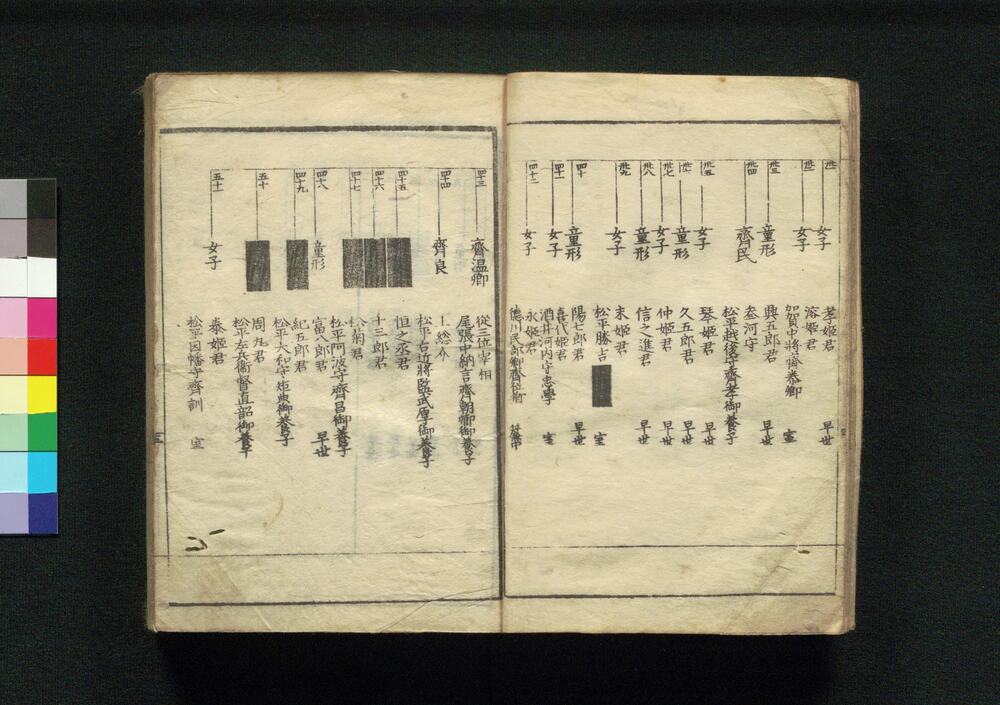 卅一
女子
孝姫君
早世
卅二
女子
溶姫君
加賀中将齊泰卿
室
卅三
童形
興五郎君
早世
卅四
齊民
参河守
松平越後守齊孝御養子
卅五
女子
琴姫君
早世
童形
久五郎君
早世
卅七
女子
仲姫君
早世
卅八
童形
信之進君
早世
卅九
女子
末姫君
松平勝吉
室
四十
童形
陽七郎君
早世
四十一
女子
喜代姫君
酒井河内守忠學
室
四十二
女子
永姫君
徳川民部卿齊位
四十三
齊温卿
従三位宰相
尾張中納言齊朝卿御養子
四十四
齊良
上総介
松平右近将監武厚御養子
四十五
恒之丞君
四十六
十三郎君
四十七
松菊君
松平阿波守齊昌御養子
四十八
童形
富八郎君
早世
四十九
紀五郎君
松平大和守矩典御養子
五十
周丸君
松平左兵衛督直韶御養子
五十一
女子
泰姫君
松平因幡守齊訓
室